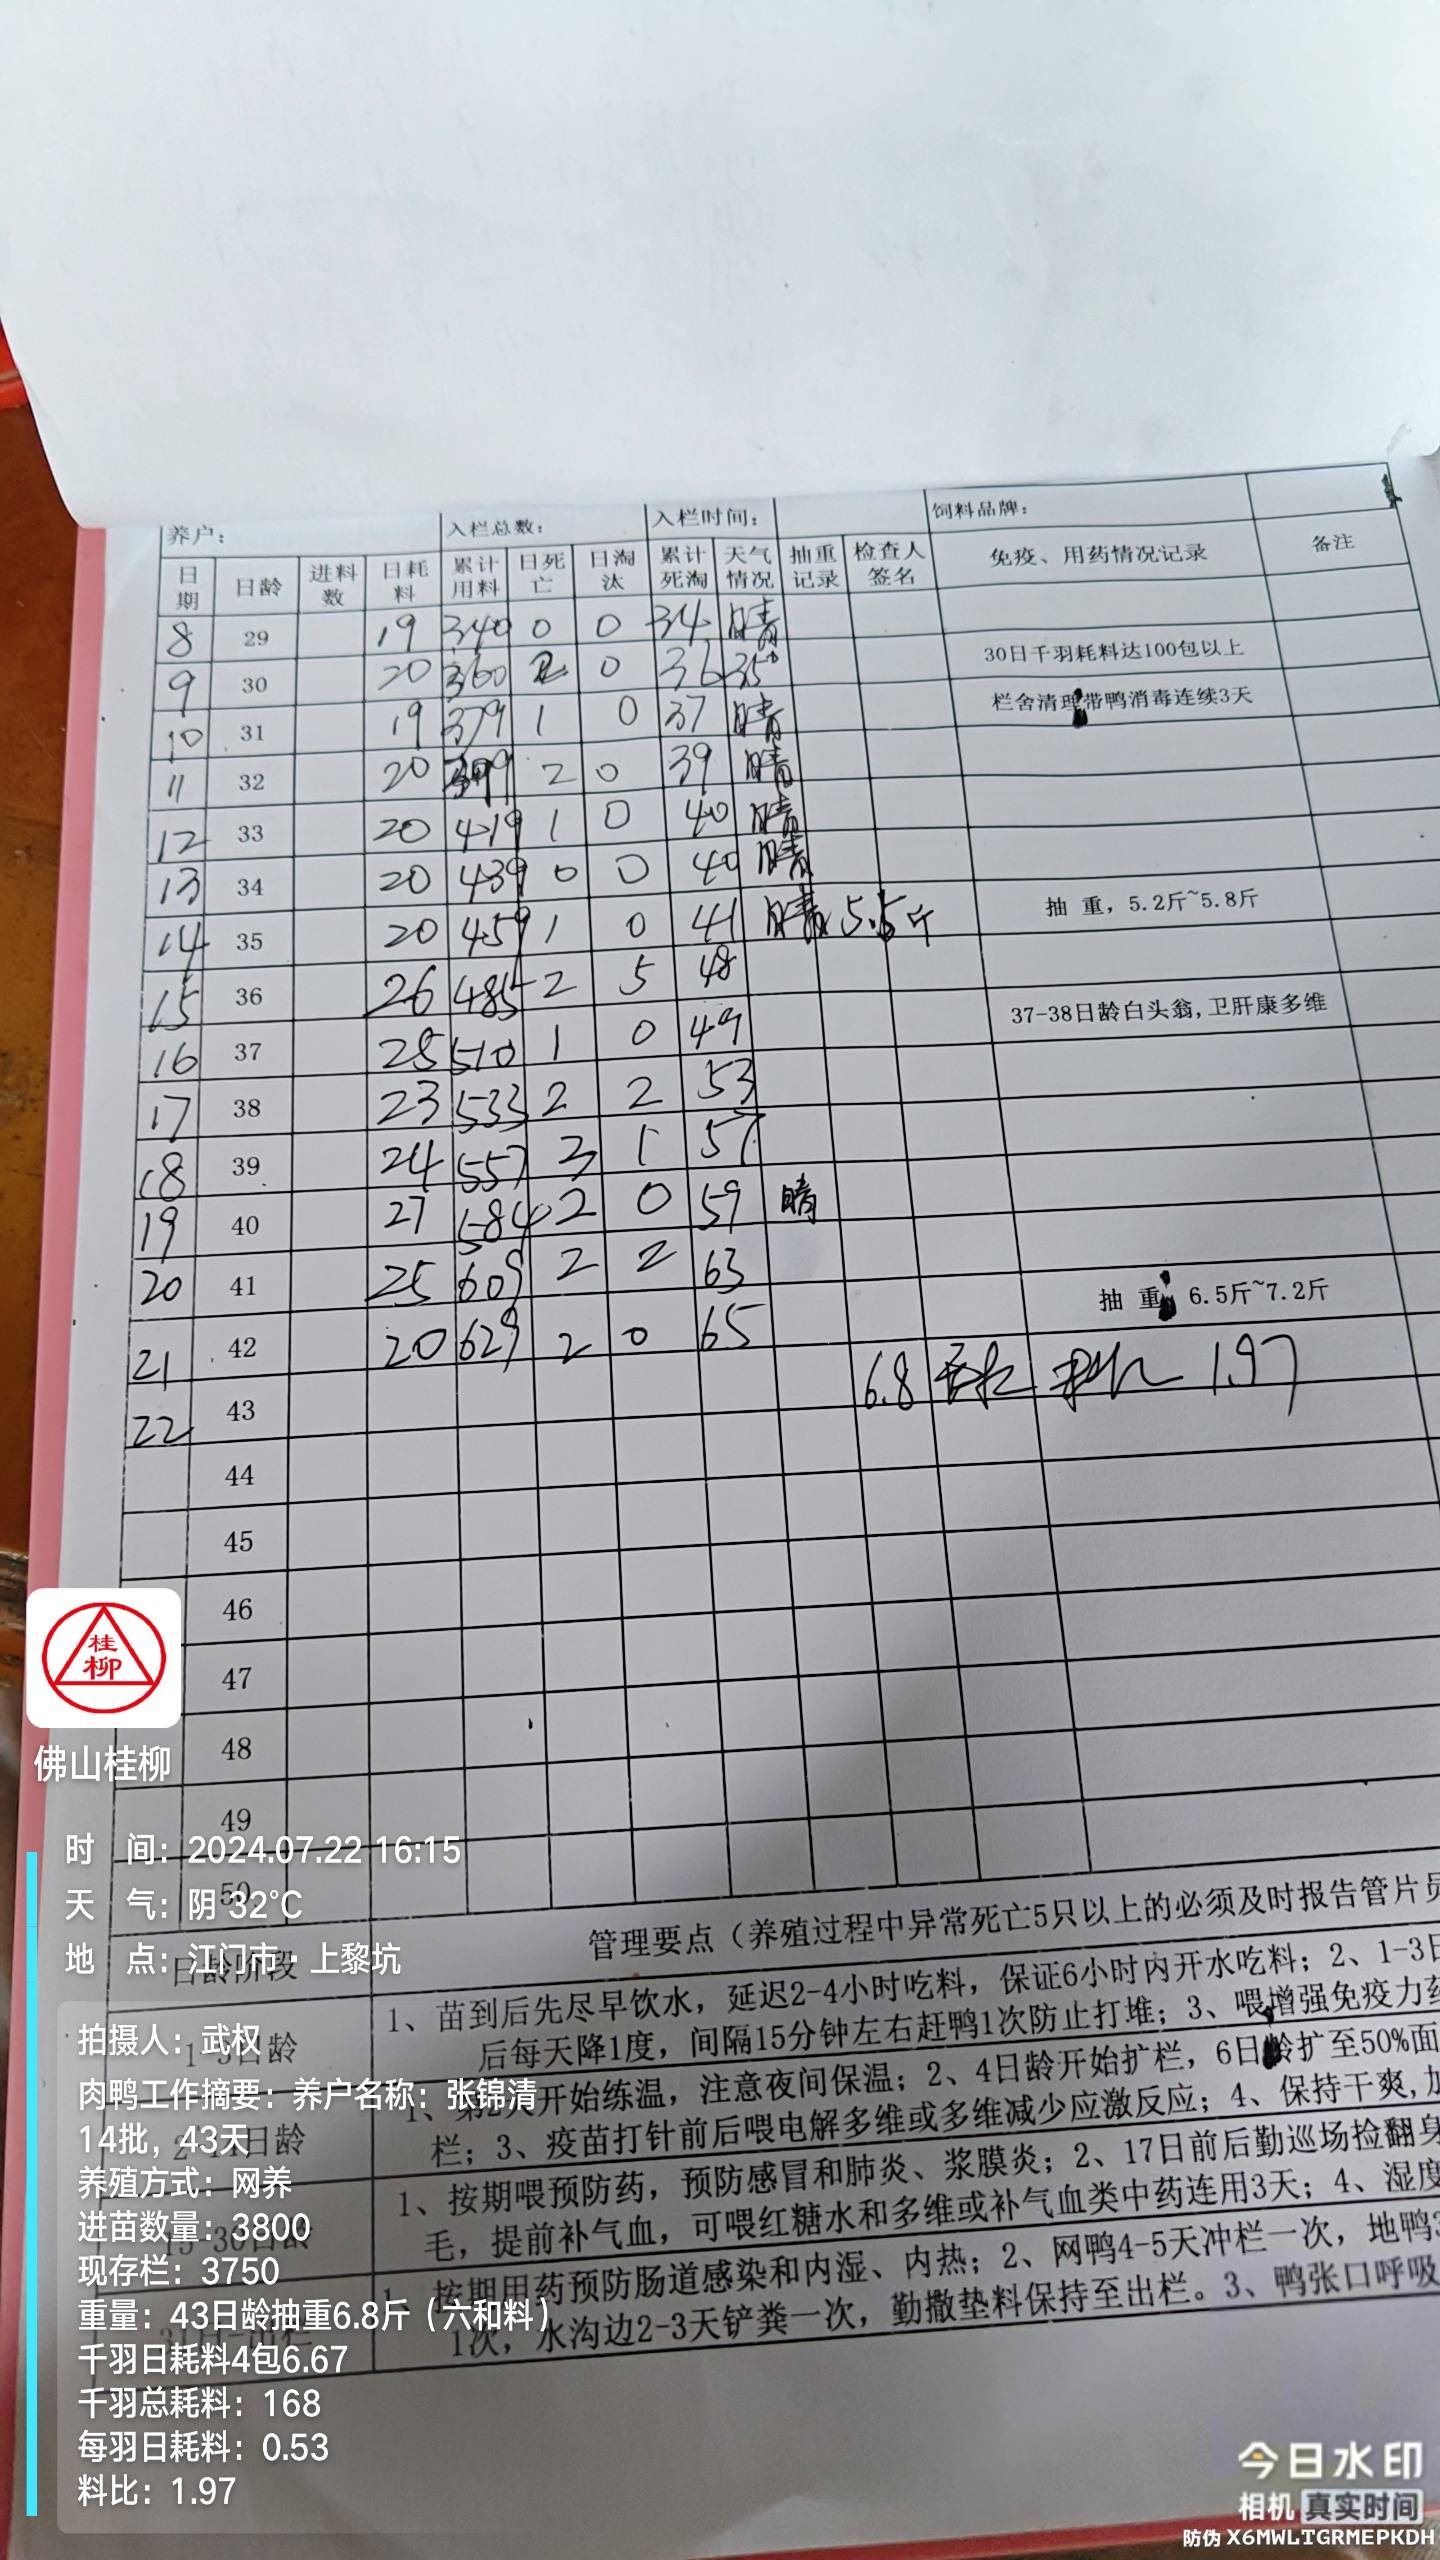 养户： 入栏总数： 入栏时间： 饲料品牌：
日期 日龄 进料数 日耗料 累计用料 日死亡 日淘汰 累计死淘 天气情况 抽重记录 检查人签名 免疫、用药情况记录 备注
8 29 19 340 0 0 34 晴
9 30 20 360 2 0 36 35° 30日千羽耗料达100包以上
10 31 19 379 1 0 37 晴 栏舍清理带鸭消毒连续3天
11 32 20 399 2 0 39 晴
12 33 20 419 1 0 40 晴
13 34 20 439 0 0 40 晴
14 35 20 459 1 0 41 晴 5.5斤 抽 重，5.2斤~5.8斤
15 36 26 485 2 5 48
16 37 25 510 1 0 49 37-38日龄白头翁,卫肝康多维
17 38 23 533 2 2 53
18 39 24 557 3 1 57
19 40 27 584 2 0 59 晴
20 41 25 609 2 2 63
21 42 20 629 2 0 65 抽 重 6.5斤~7.2斤
22 43 6.8 料比 1.97
44
45
46
47
48
49
50
日龄阶段 管理要点（养殖过程中异常死亡5只以上的必须及时报告管片员
1、苗到后先尽早饮水，延迟2-4小时吃料，保证6小时内开水吃料；2、1-3日
后每天降1度，间隔15分钟左右赶鸭1次防止打堆；3、喂增强免疫力药
1-3日龄
1、第2天开始练温，注意夜间保温；2、4日龄开始扩栏，6日龄扩至50%面
栏；3、疫苗打针前后喂电解多维或多维减少应激反应；4、保持干爽,加
日龄
1、按期喂预防药，预防感冒和肺炎、浆膜炎；2、17日前后勤巡场捡翻身
毛，提前补气血，可喂红糖水和多维或补气血类中药连用3天；4、湿度
30日龄
1、按期用药预防肠道感染和内湿、内热；2、网鸭4-5天冲栏一次，地鸭3
1次，水沟边2-3天铲粪一次，勤撒垫料保持至出栏。3、鸭张口呼吸
桂柳
佛山桂柳
时 间：2024.07.22 16:15
天 气：阴 32°C
地 点：江门市·上黎坑
拍摄人：武权
肉鸭工作摘要：养户名称：张锦清
14批，43天
养殖方式：网养
进苗数量：3800
现存栏：3750
重量：43日龄抽重6.8斤（六和料）
千羽日耗料4包6.67
千羽总耗料：168
每羽日耗料：0.53
料比：1.97
今日水印
相机 真实时间
防伪 X6MWLTGRMEPKDH